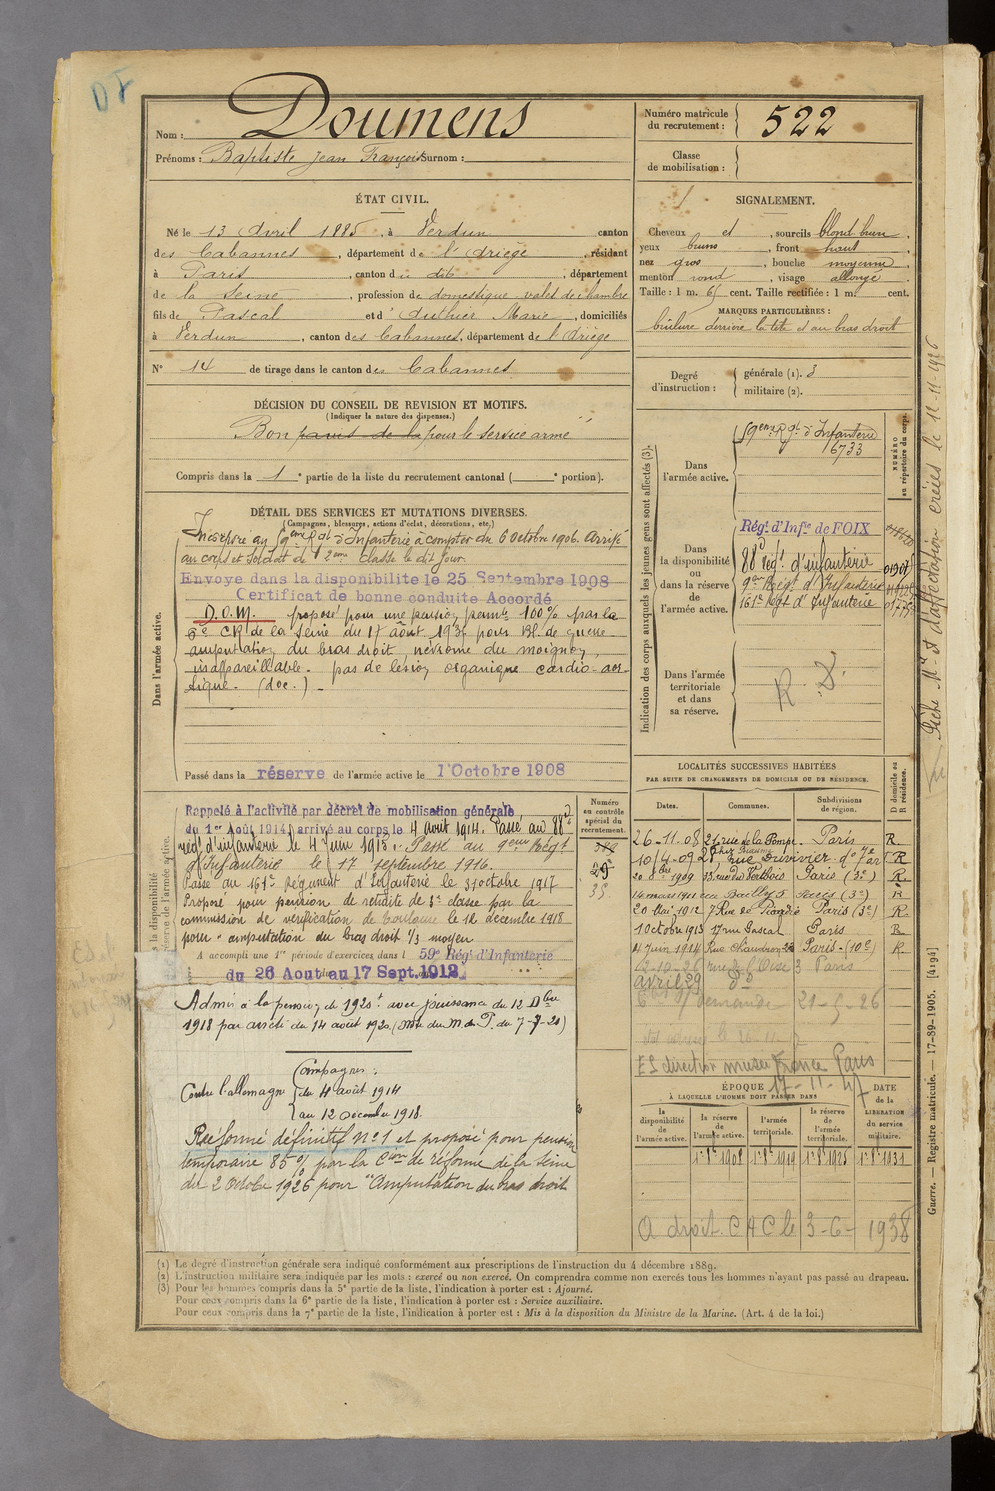 DT
Nom : Doumens
Prénoms : Baptiste Jean François Surnom :
Numéro matricule du recrutement : 522
Classe de mobilisation :
ÉTAT CIVIL.
Né le 13 Avril 1885, à Verdun canton
des Cabannes, département de l'Ariège, résidant
à Paris, canton du dit, département
de la Seine, profession de domestique valet de chambre
fils de Pascal et d'Authier Marie, domiciliés
à Verdun, canton des Cabannes, département de l'Ariège
N° 14 de tirage dans le canton des Cabannes
SIGNALEMENT.
Cheveux et, sourcils blond brun,
yeux bruns, front haut
nez gros, bouche moyenne
menton rond, visage allongé
Taille : 1 m. 65 cent. Taille rectifiée : 1 m. cent.
MARQUES PARTICULIÈRES :
brûlure derrière la tête et au bras droit
Degré d'instruction : générale (1). 3
militaire (2).
DÉCISION DU CONSEIL DE REVISION ET MOTIFS.
(Indiquer la nature des dispenses.)
Bon pour le service armé
Compris dans la 1e partie de la liste du recrutement cantonal ( e portion).
DÉTAIL DES SERVICES ET MUTATIONS DIVERSES.
(Campagnes, blessures, actions d'éclat, décorations, etc.)
Dans l'armée active.
Incorporé au 59ème Rgt d'Infanterie à compter du 6 Octobre 1906. Arrivé
au corps et soldat de 2ème classe le dit jour.
Envoyé dans la disponibilité le 25 Septembre 1908
Certificat de bonne conduite Accordé
D.O.M. proposé pour une pension permte 100% par la
CR de la Seine du 17 août 193 pour Bl. de guerre
amputation du bras droit, névrome du moignon,
inappareillable. pas de lésion organique cardio-aor
tique. (doc.)
Passé dans la réserve de l'armée active le 1 Octobre 1908
Indication des corps auxquels les jeunes gens sont affectés (3).
NUMÉRO au répertoire du corps.
Dans l'armée active.
59ème Rgt d'Infanterie
6733
Dans la disponibilité ou dans la réserve de l'armée active.
Régt d'Infie de FOIX
88e régt d'infanterie
9ème Régt d'Infanterie
161e Régt d'Infanterie
Dans l'armée territoriale et dans sa réserve.
R. D.
Rappelé à l'activité par décret de mobilisation générale
du 1er Août 1914, arrivé au corps le 4 août 1914. Passé au 88e
régt d'infanterie le 4 Juin 1915. Passé au 9ème Régt
d'Infanterie le 17 septembre 1916.
Passé au 161e Régiment d'Infanterie le 31 octobre 1917
Proposé pour pension de retraite de 3e classe par la
commission de vérification de Toulouse le 12 décembre 1918
pour "amputation du bras droit 1/3 moyen
A accompli une 1re période d'exercices dans l 59e Régt d'Infanterie
du 26 Aout au 17 Sept. 1912
Admis à la pension de 1920f avec jouissance du 12 Dbre
1918 par arrêté du 14 août 1920 (Note du M. des P. du 7-7-21)
Campagnes :
Contre l'Allemagne du 4 août 1914
au 12 Décembre 1918.
Réformé définitif N°1 et proposé pour pension
temporaire 85% par la Cion de réforme de la Seine
du 2 Octobre 1926 pour "Amputation du bras droit
Numéro au contrôle spécial du recrutement.
LOCALITÉS SUCCESSIVES HABITÉES
PAR SUITE DE CHANGEMENTS DE DOMICILE OU DE RÉSIDENCE.
Dates. Communes. Subdivisions de région. D domicile ou R résidence.
26-11-08 21, rue de la Pompe Paris R.
10-4-09 rue Duvivier. d° 7e arrt R
20 8bre 1909 33, rue du Vertbois Paris (3e) R.
14 mars 1911 rue Bailly 5 Paris (3e) R
20 Mai 1912 7 Rue de Picardie Paris (3e) R.
1 Octobre 1913 17 rue Pascal Paris R
4 Juin 1914 Rue Chaudron 26 Paris-(10e) R.
12-10-26 rue de l'Oise 3 Paris
avril 29 d°
demande 21-5-26
ES direction musée France Paris
17-11-47
ÉPOQUE
À LAQUELLE L'HOMME DOIT PASSER DANS
la disponibilité de l'armée active. la réserve de l'armée active. l'armée territoriale. la réserve de l'armée territoriale. DATE de la LIBÉRATION du service militaire.
1er 8bre 1908 1er 8bre 1919 1er 8bre 1925 1er 8bre 1931
A droit. C A C le 3-6-1938
Fiche Mle et d'affectation créées le 12-11-1926
Guerre. — Registre matricule. — 17-89-1905. [4194]
(1) Le degré d'instruction générale sera indiqué conformément aux prescriptions de l'instruction du 4 décembre 1889.
(2) L'instruction militaire sera indiquée par les mots : exercé ou non exercé. On comprendra comme non exercés tous les hommes n'ayant pas passé au drapeau.
(3) Pour les hommes compris dans la 5e partie de la liste, l'indication à porter est : Ajourné.
Pour ceux compris dans la 6e partie de la liste, l'indication à porter est : Service auxiliaire.
Pour ceux compris dans la 7e partie de la liste, l'indication à porter est : Mis à la disposition du Ministre de la Marine. (Art. 4 de la loi.)